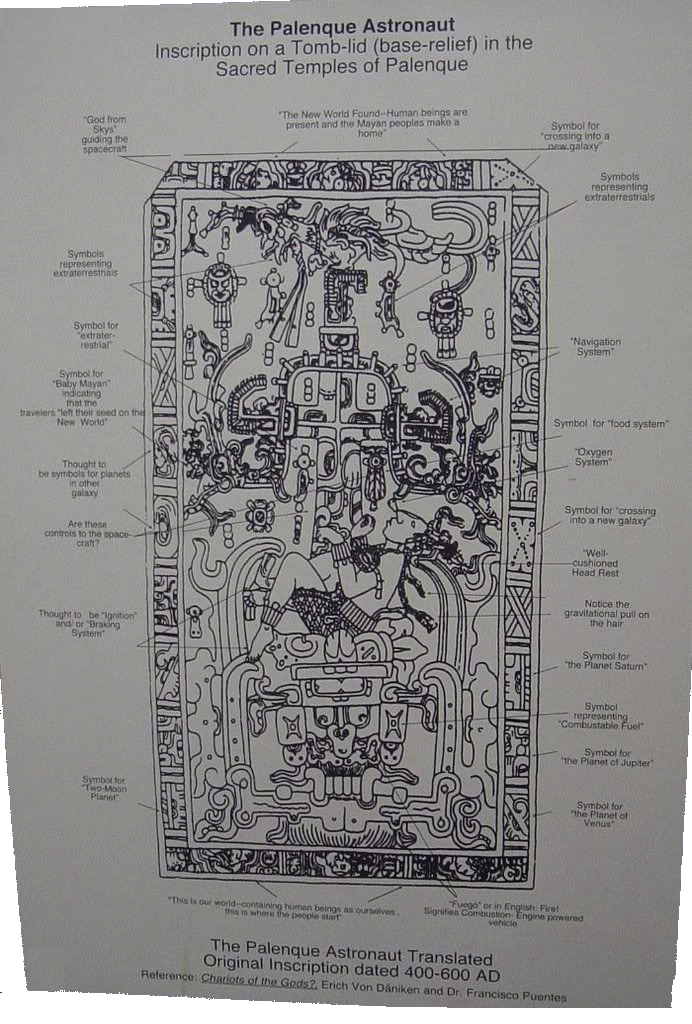 The Palenque Astronaut
Inscription on a Tomb-lid (base-relief) in the
Sacred Temples of Palenque
"God from
Skys"
guiding the
spacecraft
"The New World Found--Human beings are
present and the Mayan peoples make a
home"
Symbol for
"crossing into a
new galaxy"
Symbols
representing
extraterrestrials
Symbols
representing
extraterrestrials
Symbol for
"extrater-
restrial"
"Navigation
System"
Symbol for
"Baby Mayan"
indicating
that the
travelers "left their seed on the
New World"
Symbol for "food system"
"Oxygen
System"
Thought to
be symbols for planets
in other
galaxy
Symbol for "crossing
into a new galaxy"
Are these
controls to the space-
craft?
"Well-
cushioned
Head Rest
Notice the
gravitational pull on
the hair
Thought to be "Ignition"
and/ or "Braking
System"
Symbol for
"the Planet Saturn"
Symbol
representing
"Combustable Fuel"
Symbol for
"the Planet of Jupiter"
Symbol for
"Two-Moon
Planet"
Symbol for
"the Planet of
Venus"
"This is our world--containing human beings as ourselves..
this is where the people start"
"Fuego" or in English: Fire!
Signifies Combustion- Engine powered
vehicle
The Palenque Astronaut Translated
Original Inscription dated 400-600 AD
Reference: Chariots of the Gods?, Erich Von Däniken and Dr. Francisco Puentes